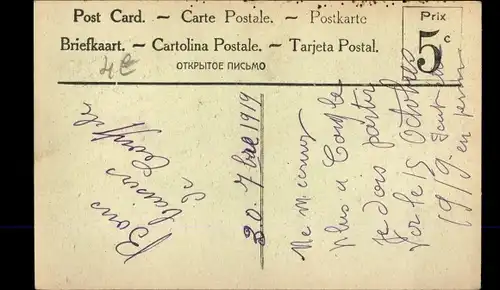 Post Card. — Carte Postale. — Postkarte
Briefkaart. — Cartolina Postale. — Tarjeta Postal.
ОТКРЫТОЕ ПИСЬМО
Prix
5 c
4€
Bons
baisers
de
30. 7bre 1919
Me
plus à
Je dois partir
le 15 octobre
1919. en perm